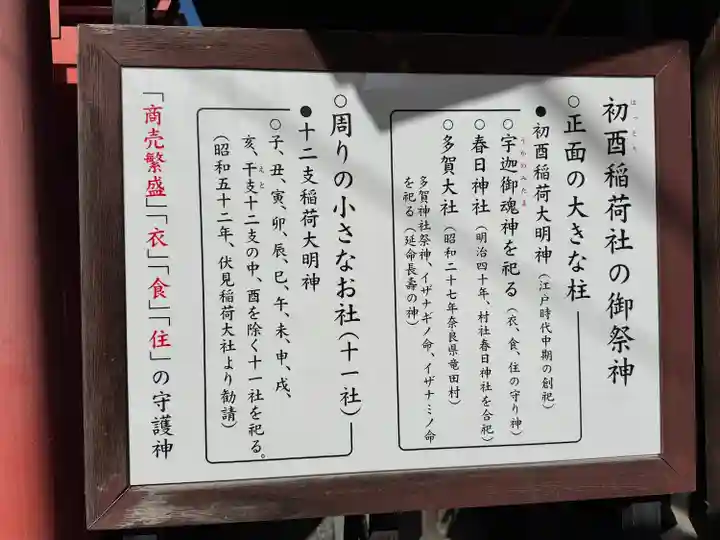 初酉稲荷社の御祭神
はっとり
○正面の大きな柱
●初酉稲荷大明神（江戸時代中期の創祀）
○宇迦御魂神を祀る（衣、食、住の守り神）
うかのみたま
○春日神社（明治四十年、村社春日神社を合祀）
○多賀大社（昭和二十七年奈良県竜田村）
多賀神社祭神、イザナギノ命、イザナミノ命
を祀る（延命長壽の神）
○周りの小さなお社（十一社）
●十二支稲荷大明神
○子、丑、寅、卯、辰、巳、午、未、申、戌、
亥、干支十二支の中、酉を除く十一社を祀る。
えと
（昭和五十二年、伏見稲荷大社より勧請）
「商売繁盛」「衣」「食」「住」の守護神